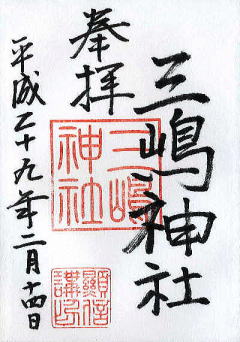 奉拝
三嶋神社
三嶋神社
平成二十九年二月十四日